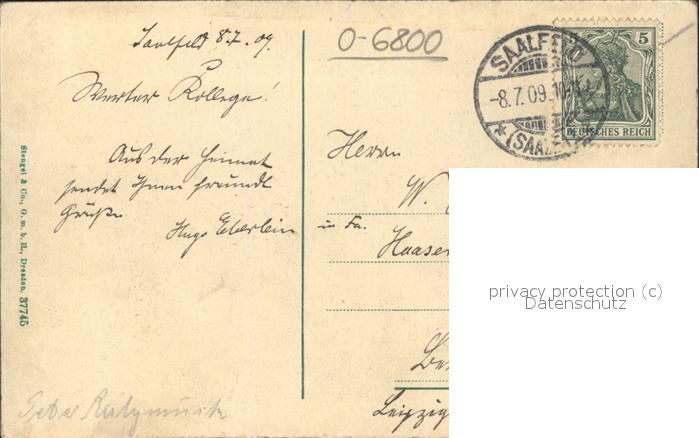 Saalfeld 8.7.09.
0-6800
SAALFELD
-8.7.09.10-
(SAALE)
5
DEUTSCHES REICH
Werter Kollege!
Aus der Heimat
sendet Ihnen freundl
Grüße
Hugo Eberlein
Herrn
W.
in Fa.
Haasen
Leipzig
Stengel & Co., G. m. b. H., Dresden. 37745
privacy protection (c)
Datenschutz